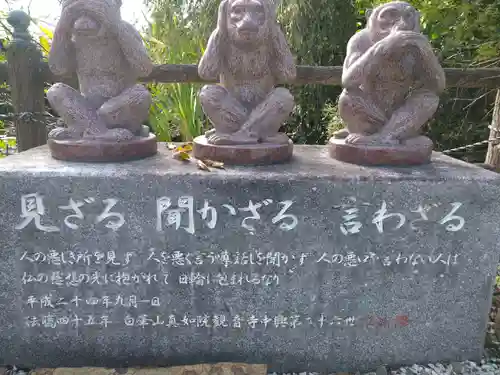 見ざる 聞かざる 言わざる
人の悪しき所を見ず 人を悪く言う噂話しを聞かず 人の悪口を言わない人は
仏の慈悲の光に抱かれて 日輪に包まれるなり
平成二十四年九月一日
法臈四十五年 白華山真如院観音寺中興第二十六世